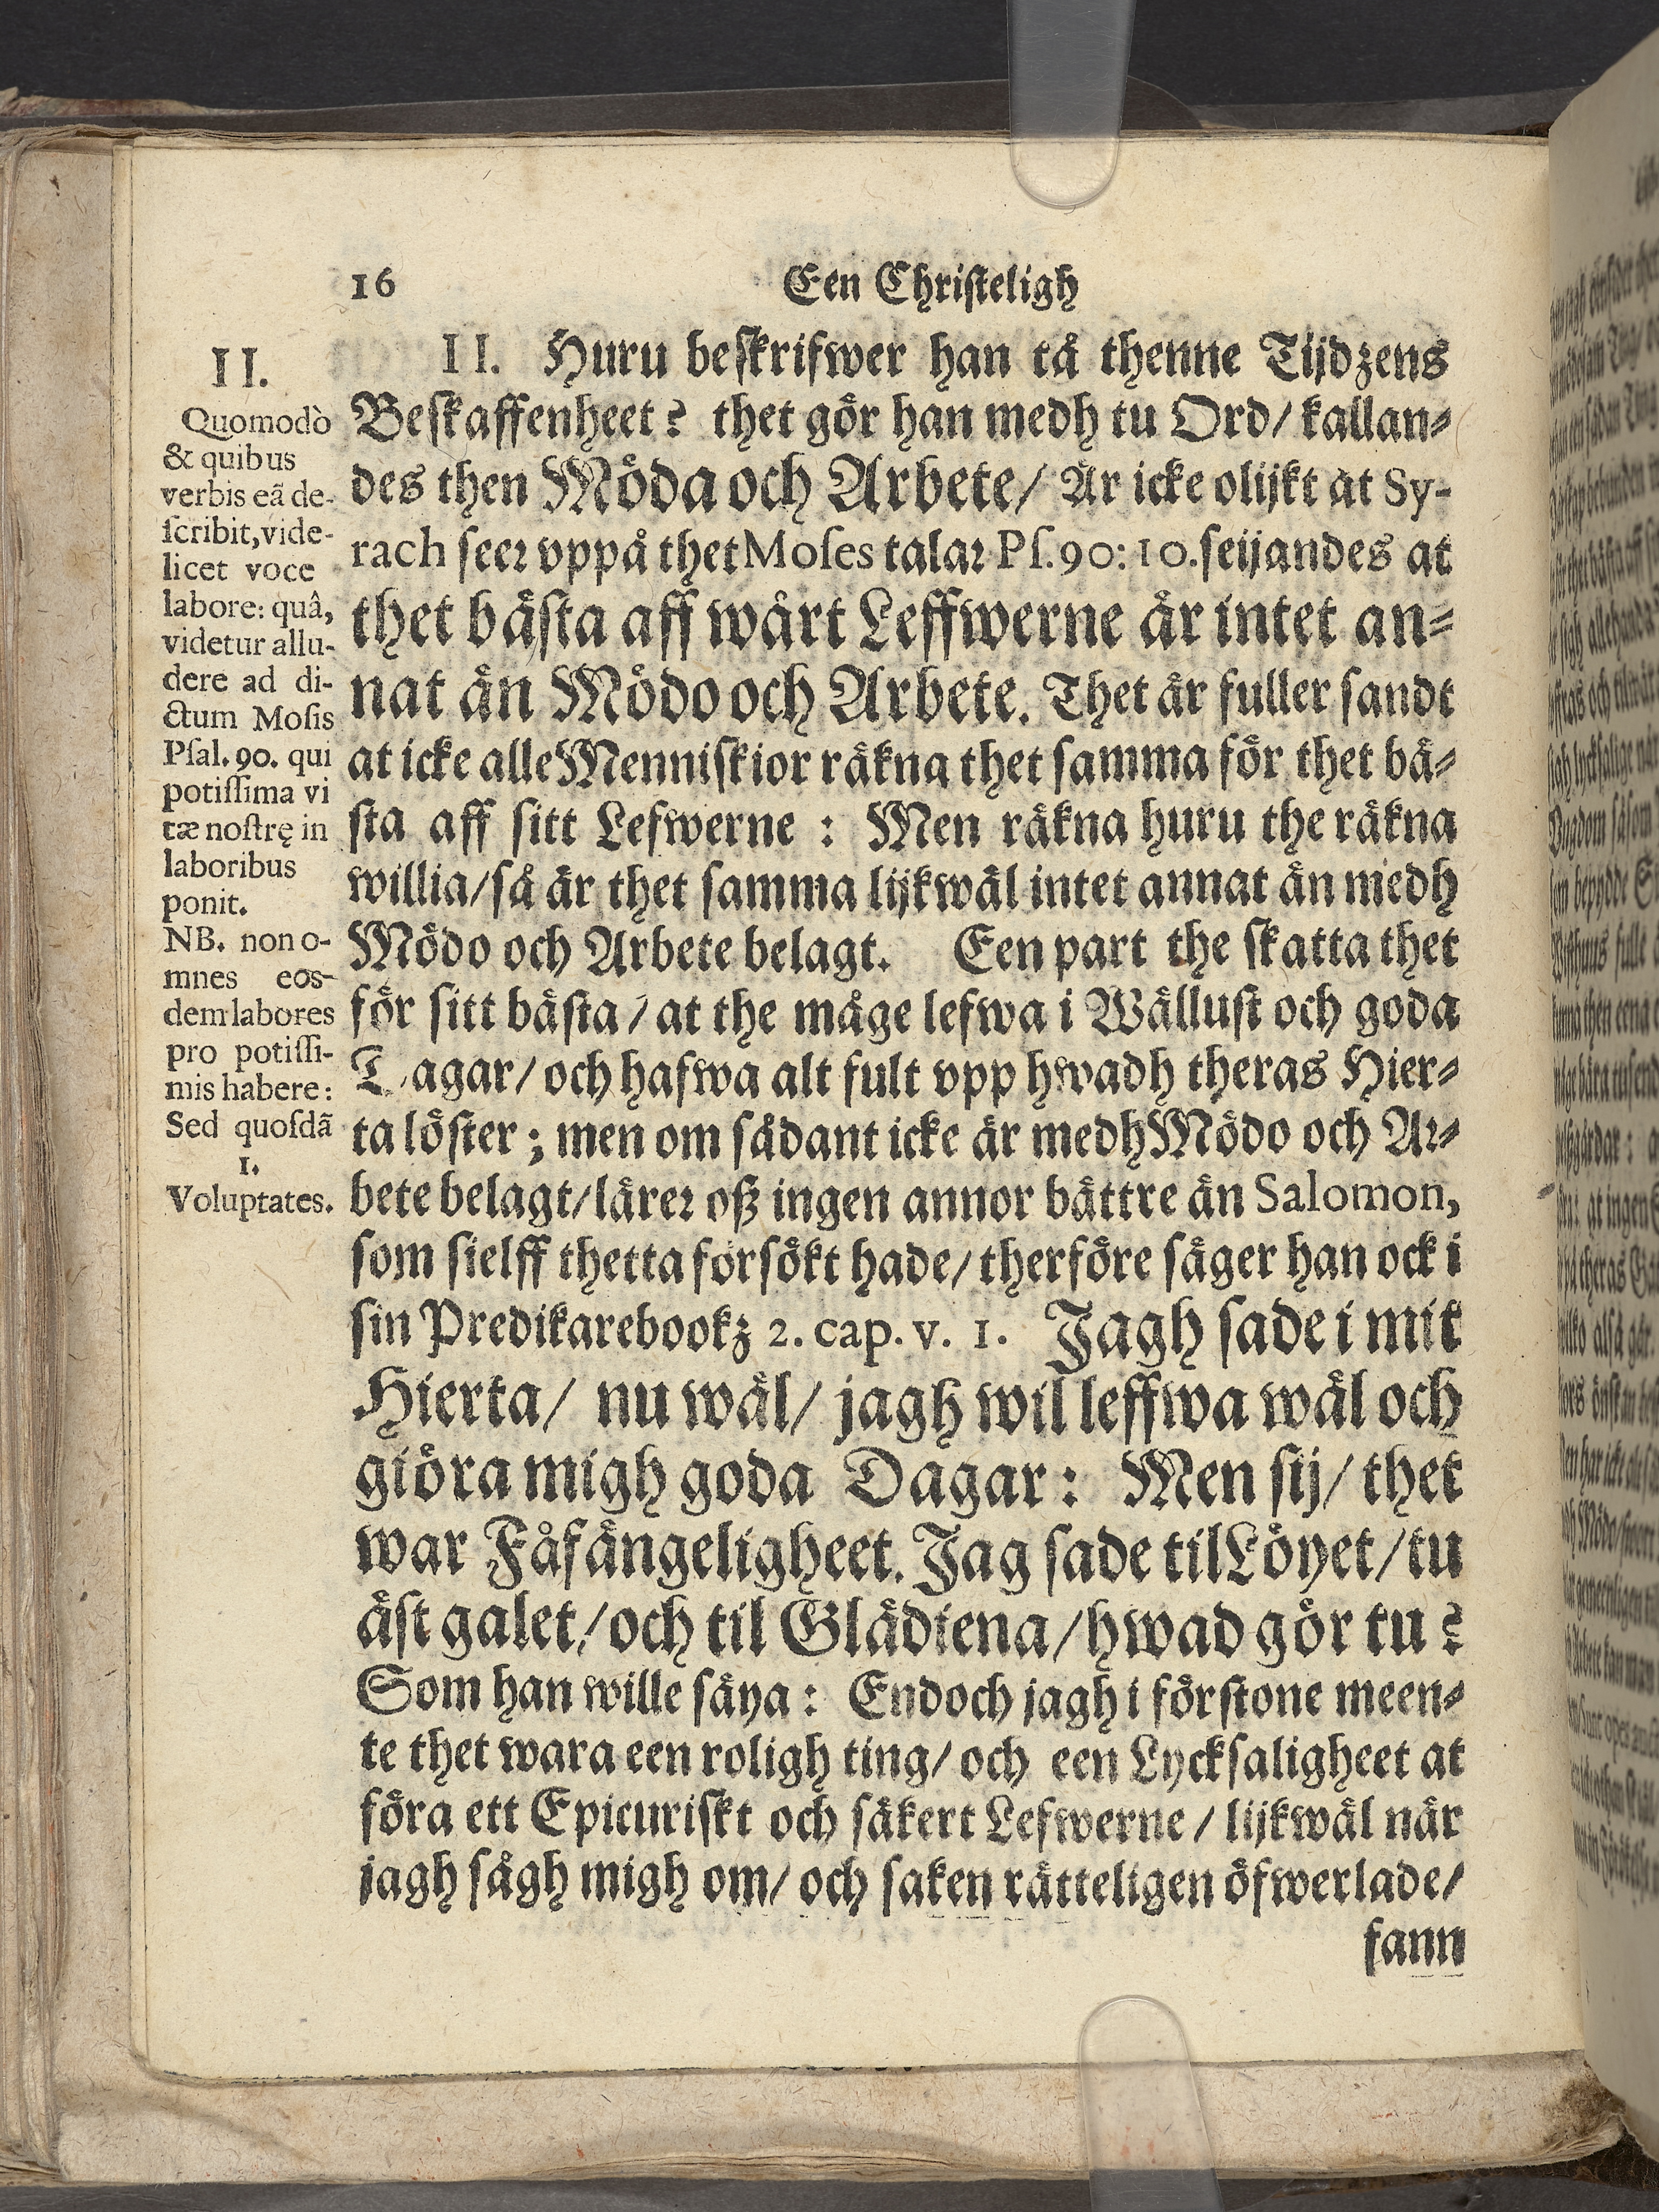 16
Een Christeligh
II.
Quomodò
& quibus
verbis eã de-
scribit, vide-
licet voce
labore: quâ,
videtur allu-
dere ad di-
ctum Mosis
Psal. 90. qui
potissima vi
tæ nostrę in
laboribus
ponit.
NB. non o-
mnes eos-
dem labores
pro potissi-
mis habere:
Sed quosdã
1.
Voluptates.
II. Huru beskrifwer han tå thenne Tijdzens
Beskaffenheet? thet gör han medh tu Ord/ kallan-
des then Möda och Arbete/ Är icke olijkt at Sy-
rach seer vppå thet Moses talar Ps. 90: 10. seijandes at
thet bästa aff wårt Leffwerne är intet an-
nat än Mödo och Arbete. Thet är fuller sandt
at icke alle Menniskior räkna thet samma för thet bä-
sta aff sitt Lefwerne : Men räkna huru the räkna
willia/ så är thet samma lijkwäl intet annat än medh
Mödo och Arbete belagt. Een part the skatta thet
för sitt bästa/ at the måge lefwa i Wällust och goda
Tagar/ och hafwa alt fult vpp hwadh theras Hier-
ta löster; men om sådant icke är medh Mödo och Ar-
bete belagt/ lärer oß ingen annor bättre än Salomon,
som sielff thetta försökt hade/ therföre säger han ock i
sin Predikarebookz 2. cap. v. 1. Jagh sade i mit
Hierta/ nu wäl/ jagh wil leffwa wäl och
giöra migh goda Dagar: Men sij/ thet
war Fåfängeligheet. Jag sade til Löyet/ tu
äst galet/ och til Glädiena/ hwad gör tu?
Som han wille säya: Endoch jagh i förstone meen-
te thet wara een roligh ting/ och een Lycksaligheet at
föra ett Epicuriskt och säkert Lefwerne/ lijkwäl när
jagh sågh migh om/ och saken rätteligen öfwerlade/
fann